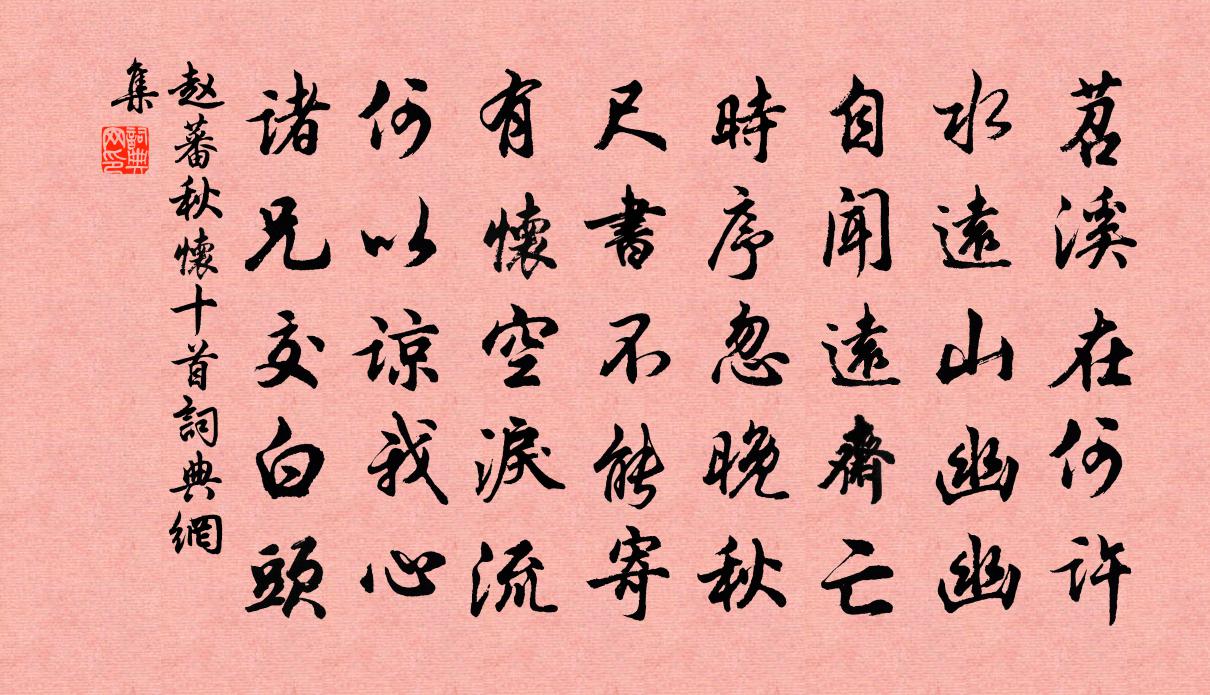 苕溪在何許
水遠山幽幽
自聞遠齋亡
時序忽晚秋
尺書不能寄
有懷空淚流
何以諒我心
諸兄交白頭
赵蕃秋懷十首詞典網
集
詞典
网印